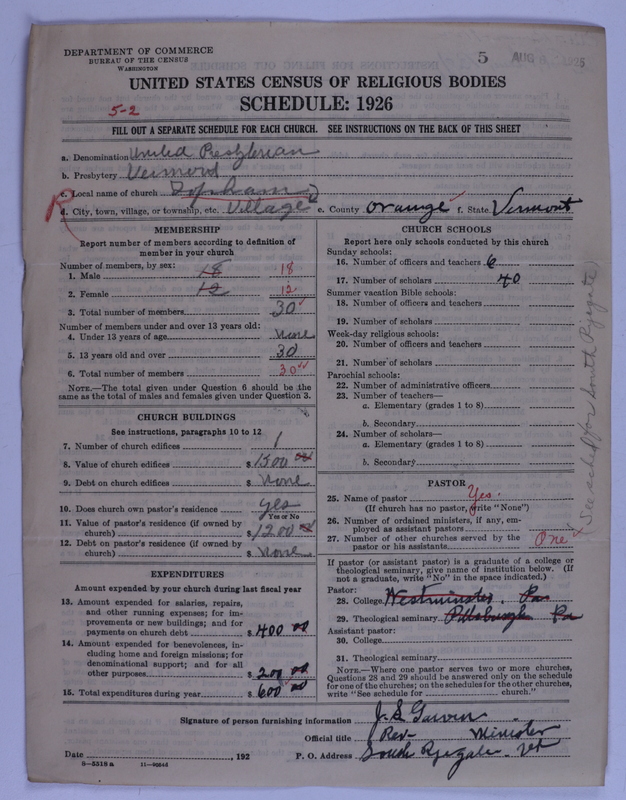 DEPARTMENT OF COMMERCE
BUREAU OF THE CENSUS
WASHINGTON
5 AUG 1926
UNITED STATES CENSUS OF RELIGIOUS BODIES
SCHEDULE: 1926
5-2
FILL OUT A SEPARATE SCHEDULE FOR EACH CHURCH. SEE INSTRUCTIONS ON THE BACK OF THIS SHEET
a. Denomination United Presbyterian
b. Presbytery Vermont
c. Local name of church Topham
R
d. City, town, village, or township, etc. Village e. County Orange f. State Vermont
MEMBERSHIP
Report number of members according to definition of member in your church
Number of members, by sex:
1. Male 18 18
2. Female 12 12
3. Total number of members 30
Number of members under and over 13 years old:
4. Under 13 years of age none
5. 13 years old and over 30
6. Total number of members 30
NOTE.—The total given under Question 6 should be the
same as the total of males and females given under Question 3.
CHURCH BUILDINGS
See instructions, paragraphs 10 to 12
7. Number of church edifices 1
8. Value of church edifices $ 1500 00
9. Debt on church edifices $ none
10. Does church own pastor's residence yes
Yes or No
11. Value of pastor's residence (if owned by
church) $ 1200 00
12. Debt on pastor's residence (if owned by
church) $ none
EXPENDITURES
Amount expended by your church during last fiscal year
13. Amount expended for salaries, repairs,
and other running expenses; for im-
provements or new buildings; and for
payments on church debt $ 400 00
14. Amount expended for benevolences, in-
cluding home and foreign missions; for
denominational support; and for all
other purposes $ 200 00
15. Total expenditures during year $ 600 00
CHURCH SCHOOLS
Report here only schools conducted by this church
Sunday schools:
16. Number of officers and teachers 6
17. Number of scholars 40
Summer vacation Bible schools:
18. Number of officers and teachers
19. Number of scholars
Week-day religious schools:
20. Number of officers and teachers
21. Number of scholars
Parochial schools:
22. Number of administrative officers
23. Number of teachers—
a. Elementary (grades 1 to 8)
b. Secondary
24. Number of scholars—
a. Elementary (grades 1 to 8)
b. Secondary
PASTOR
25. Name of pastor Yes.
(If church has no pastor, write "None")
26. Number of ordained ministers, if any, em-
ployed as assistant pastors
27. Number of other churches served by the
pastor or his assistants One
If pastor (or assistant pastor) is a graduate of a college or
theological seminary, give name of institution below. (If
not a graduate, write "No" in the space indicated.)
Pastor:
28. College Westminster. Pa
29. Theological seminary Pittsburgh Pa
Assistant pastor:
30. College
31. Theological seminary
NOTE.—Where one pastor serves two or more churches,
Questions 28 and 29 should be answered only on the schedule
for one of the churches; on the schedules for the other churches,
write "See schedule for church."
(See sched for South Ryegate)
Signature of person furnishing information J. S. Garven
Official title Rev- Minister
Date , 192 P. O. Address South Ryegate Vt
8-5318a 11-9084d